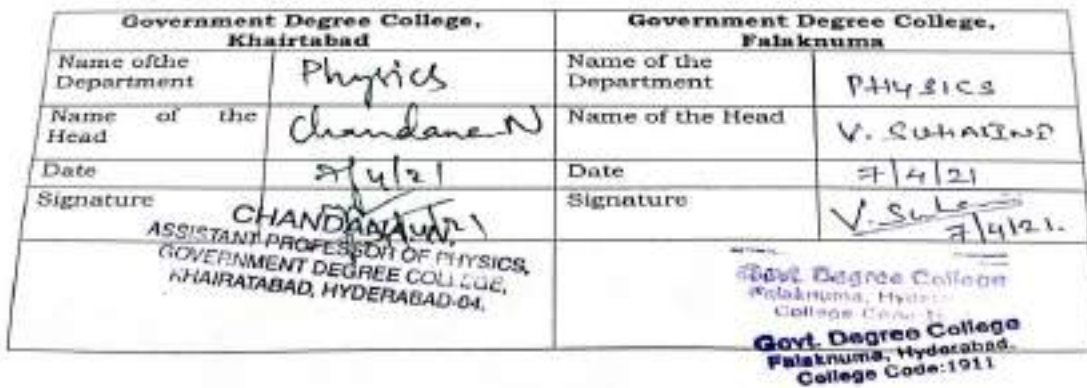 Government Degree College,
Khairtabad
Government Degree College,
Falaknuma
Name ofthe
Department
Physics
Name of the
Department
PHYSICS
Name of the
Head
Chandana N
Name of the Head
V. SUHASINI
Date
7/4/21
Date
7/4/21
Signature
CHANDANA.N,
ASSISTANT PROFESSOR OF PHYSICS,
GOVERNMENT DEGREE COLLEGE,
KHAIRATABAD, HYDERABAD-04.
Signature
7/4/21.
Govt. Degree College
Falaknuma,
College
Govt. Degree College
Falaknuma, Hyderabad.
College Code:1911